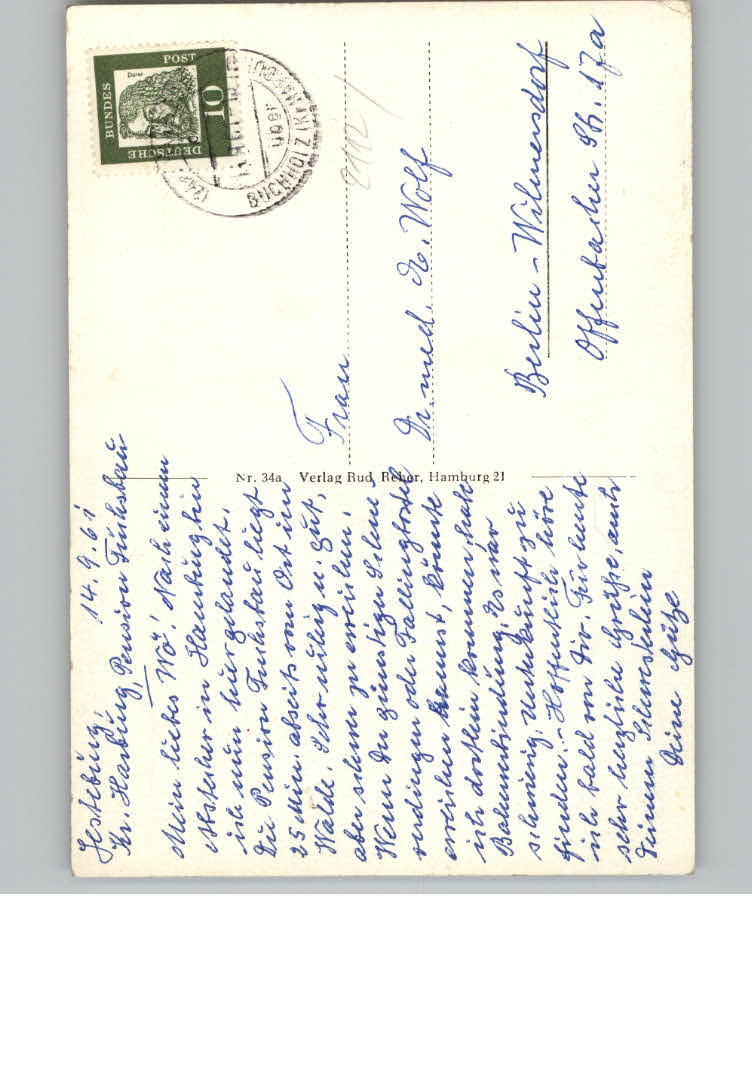 Jesteburg, 14.9.61
Kr. Harburg, Pension Fuchsbau
Mein liebes Wö! Nach einem
Abstecher in Hamburg bin
ich nun hier gelandet.
Die Pension Fuchsbau liegt
25 Min. abseits vom Ort im
Walde. Sehr ruhig u. gut,
aber schwer zu erreichen.
Wenn Du günstig Schne-
verdingen oder Fallingbostel
erreichen kannst, könnte
ich dorthin kommen, habe
Bahnverbindung. Es war
schwierig, Unterkunft zu
finden. - Hoffentlich höre
ich bald von Dir. Für heute
sehr herzliche Grüße, auch
Deinem Schwesterlein
Deine
Nr. 34a Verlag Rud. Reher, Hamburg 21
DEUTSCHE BUNDES POST
Dürer
10
über
BUCHHOLZ (Kr
2112/
Frau
Dr. med. E. Wolf
Berlin - Wilmersdorf
Offenbacher Str. 17a